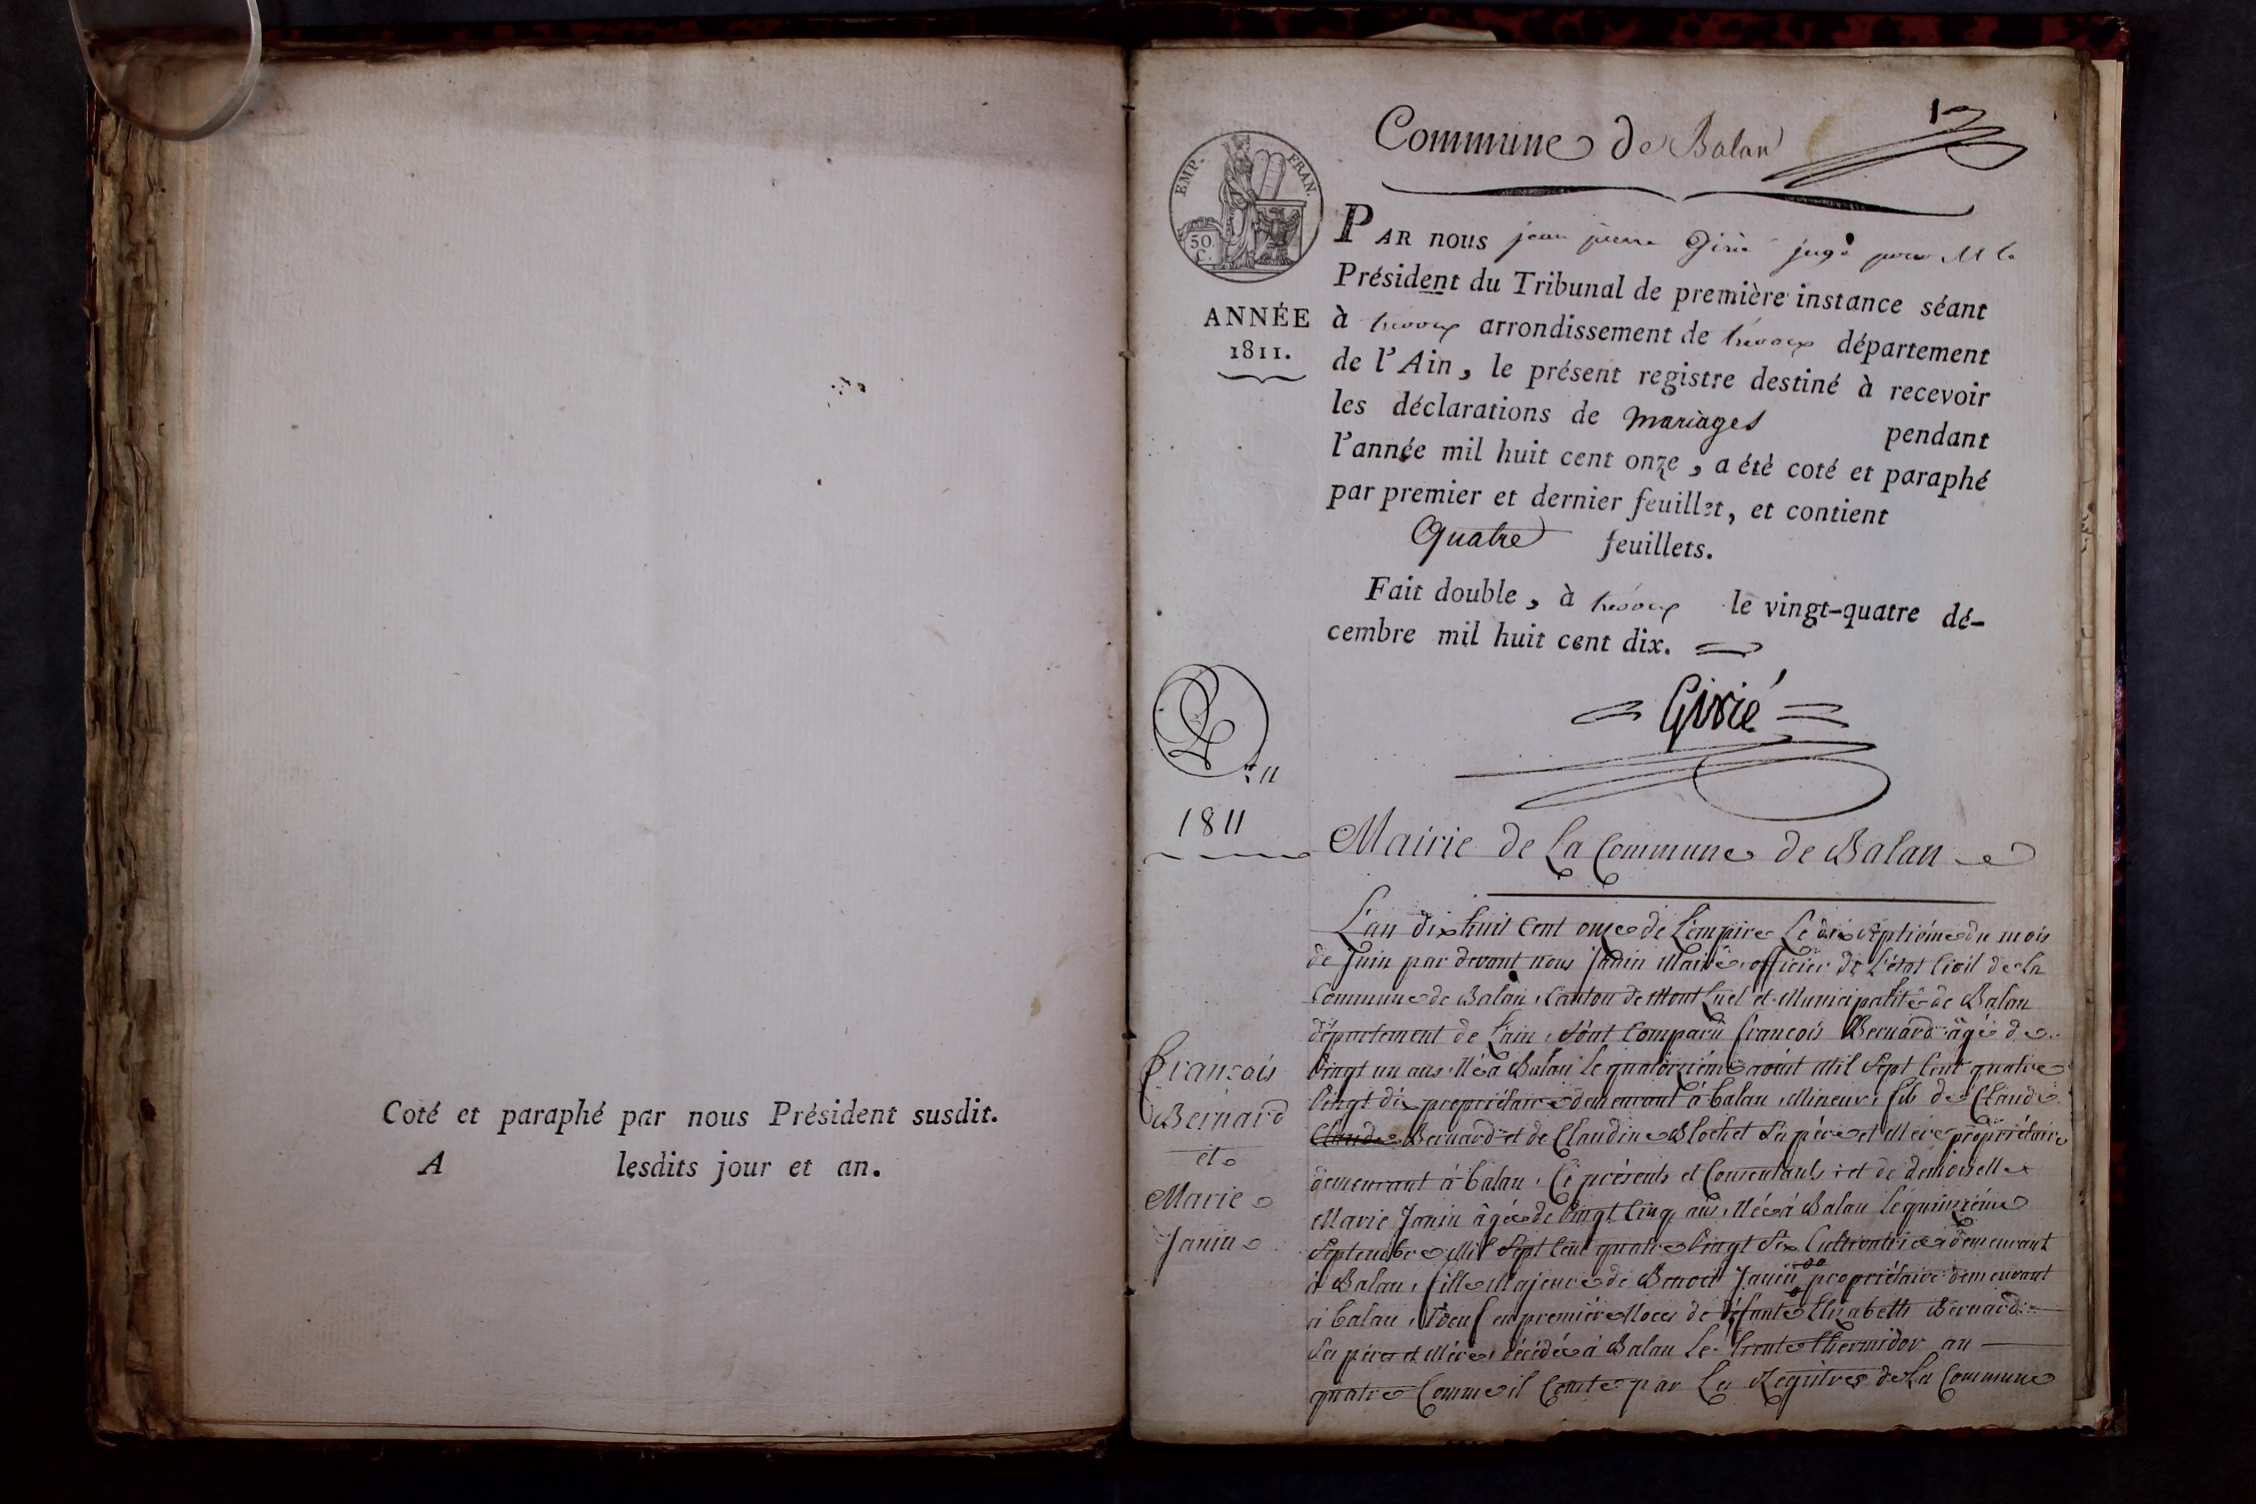 Coté et paraphé par nous Président susdit.
A lesdits jour et an.
1
Commune de Balan
EMP. FRAN.
50 C.
ANNÉE
1811.
PAR nous jean pierre Girié juge pour M le
Président du Tribunal de première instance séant
à trevoux arrondissement de trevoux département
de l'Ain, le présent registre destiné à recevoir
les déclarations de mariages pendant
l'année mil huit cent onze, a été coté et paraphé
par premier et dernier feuillet, et contient
Quatre feuillets.
Fait double, à trevoux le vingt-quatre dé-
cembre mil huit cent dix.
Girié
1811
Mairie de La Commune de Balan
François
Bernard
et
Marie
Janin
L'an dix huit Cent onze de L'empire Le dix septiéme du mois
de Juin par devant nous Janin Maire, officier de L'état Civil de la
Commune de Balan, Canton de Mont Luel et Municipalité de Balan
département de L'ain, Sont Comparu francois Bernard âgé de
vingt un ans Né à Balan le quatorziéme aout Mil Sept Cent quatre
vingt dix propriétaire demeurant à balan, Mineur, fils de Claude
Claude Bernard et de Claudine Blochet Ses pére et Mére propriétaire
demeurant à balan, Ci présents et Consentants, et de demoiselle
Marie Janin âgée de vingt Cinq ans, Née à Balan le quinziéme
Septembre Mil Sept Cent quatre vingt Six Cultivatrice demeurant
à Balan, fille Majeure de Benoit Janin propriétaire demeurant
à balan, Veuf en premiére Noces de défunte Elisabeth Bernard
Ses péres et Mére, décédée à Balan Le trente thermidor an
quatre Comme il Conste par Les Registres de La Commune